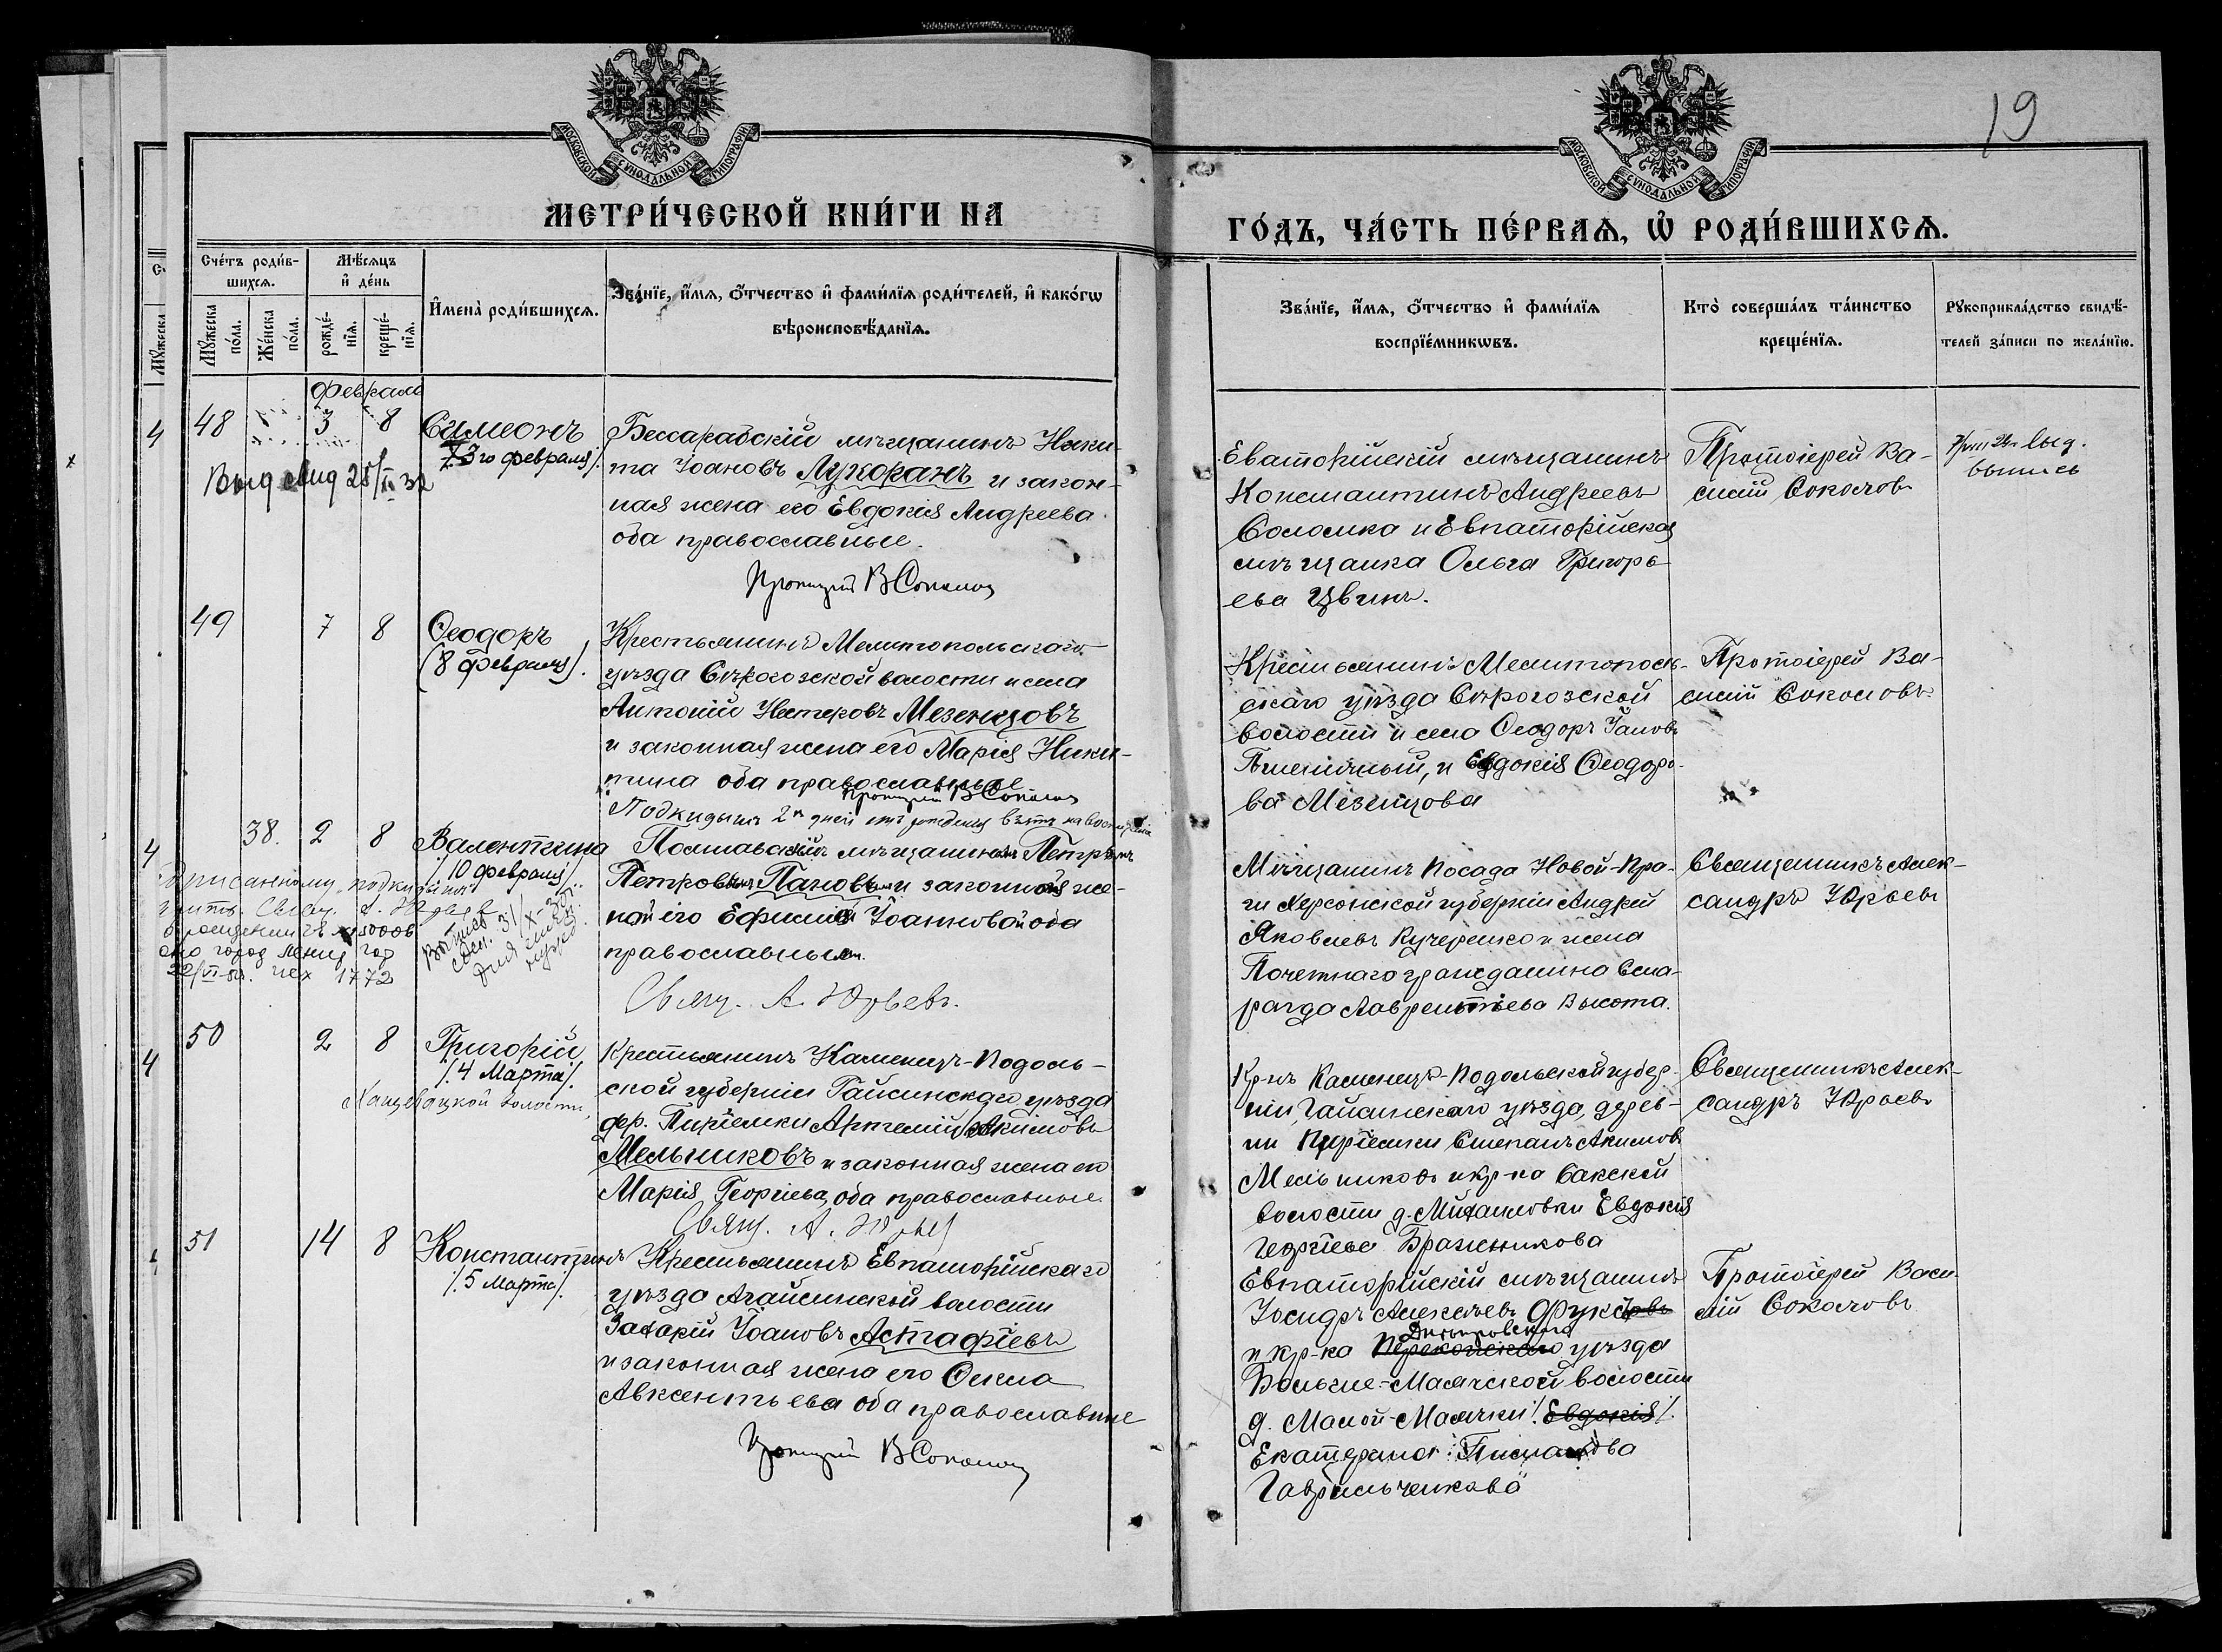 19
МОСКОВСКОЙ СУНОДАЛЬНОЙ ТИПОГРАФІИ
МОСКОВСКОЙ СУНОДАЛЬНОЙ ТИПОГРАФІИ
МЕТРИ́ЧЕСКОЙ КНИ́ГИ НА
ГО́ДЪ, ЧА́СТЬ ПЕ́РВАѦ, Ѡ҆ РОДИ́ВШИХСѦ.
Сче́тъ роди́в-
шихсѧ.
Мѣ́сѧцъ
и҆ де́нь
Мꙋ́жеска по́ла.
Же́нска по́ла.
рожде́-нїѧ.
креще́-нїѧ.
И҆мена̀ роди́вшихсѧ.
Зва́нїе, и҆́мѧ, ѻ҆́тчество и҆ фами́лїѧ роди́телей, и҆ како́гѡ
вѣроисповѣ́данїѧ.
Зва́нїе, и҆́мѧ, ѻ҆́тчество и҆ фами́лїѧ
воспрїе́мникѡвъ.
Кто̀ соверша́лъ та́инство
креще́нїѧ.
Рꙋкоприкла́дство свидѣ́-
телей за́писи по жела́нїю.
Февраль
48 3 8 Симеонъ
3го февраля
Выд свид 25/II 32
Бессарабскій мѣщанинъ Ники-
та Іоановъ Лукоранъ и закон-
ная жена его Евдокія Андреева
оба православные.
Протоіерей В Соколов
Евпаторійскій мѣщанинъ
Константинъ Андреевъ
Соломка и Евпаторійская
мѣщанка Ольга Григорь-
ева Цвинъ.
Протоіерей Ва-
силій Соколовъ
выд.
выпись
49 7 8 Ѳеодоръ
(8 февраля).
Крестьянинъ Мелитопольскаго
уѣзда Сѣрогозской волости и села
Антоній Нестеровъ Мезенцовъ
и законная жена его Марія Ники-
тина оба православные
Протоіерей В Соколов
Крестьянинъ Мелитополь-
скаго уѣзда Сѣрогозской
волости и села Ѳеодоръ Іановъ
Пшеничный, и Евдокія Ѳеодоро-
ва Мезенцова
Протоіерей Ва-
силій Соколовъ
38. 2 8 Валентина
/10 февраля/
Подкидышъ 2х дней отъ рожденія взятъ на воспитаніе
Полтавскій мѣщанинъ Петръ
Петровъ Пановъ и законной же-
ной его Ефиміей Іоанновой оба
православные.
Свящ. А. Юрьевъ.
подкидышъ
Свящ. А. Юрьев
22/VI 1772
Выпись
31/X-30
для
Мѣщанинъ посада Новой-Пра-
ги Херсонской губерніи Андрей
Яковлевъ Кучеренко и жена
Почетнаго гражданина Сма-
рагда Лаврентьева Высота.
Священникъ Алек-
сандръ Юрьевъ
50 2 8 Григорій
/4 Марта/.
Хащевацкой волости,
Крестьянинъ Каменецъ-Подоль-
ской губерніи Гайсинскаго уѣзда
дер. Артемій Акимовъ
Мельниковъ и законная жена его
Марія Георгіева, оба православные.
Свящ. А. Юрьев
Кр-нъ Каменецъ-Подольской губер-
ніи, Гайсинскаго уѣзда, дерев-
ни Степанъ Акимовъ
Мельниковъ и кр-ка Сакской
волости д. Михайловки Евдокія
Георгіева Бражникова
Священникъ Алек-
сандръ Юрьевъ
51 14 8 Константинъ
/5 Марта/.
Крестьянинъ Евпаторійскаго
уѣзда Агайской волости
Захарій Іоановъ Астафіевъ
и законная жена его Ѳекла
Авксентьева оба православные
Протоіерей В Соколов
Евпаторійскій мѣщанинъ
Іосифъ Алексѣевъ
и кр-ка Перекопскаго Днѣпровскаго уѣзда
Больше-Маячской волости
д. Малой-Маячки /Евдокія/.
Екатерина
Гаврильченкова
Протоіерей Васи-
лій Соколовъ